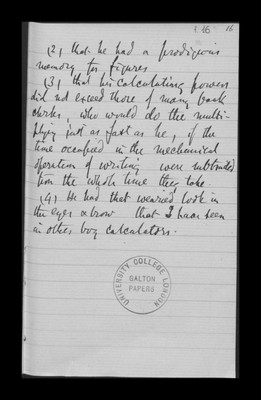 16
(2) that he had a prodigious
memory for figures
(3) that his calculating powers
did not exceed those of many bank
clerks, who would do the multi-
plying just as fast as he, if the
time occupied in the mechanical
operation of writing were subtracted
from the whole time they take.
(4) He had that wearied look in
the eyes & brow that I have seen
in other boy calculators.
UNIVERSITY COLLEGE LONDON
GALTON
PAPERS